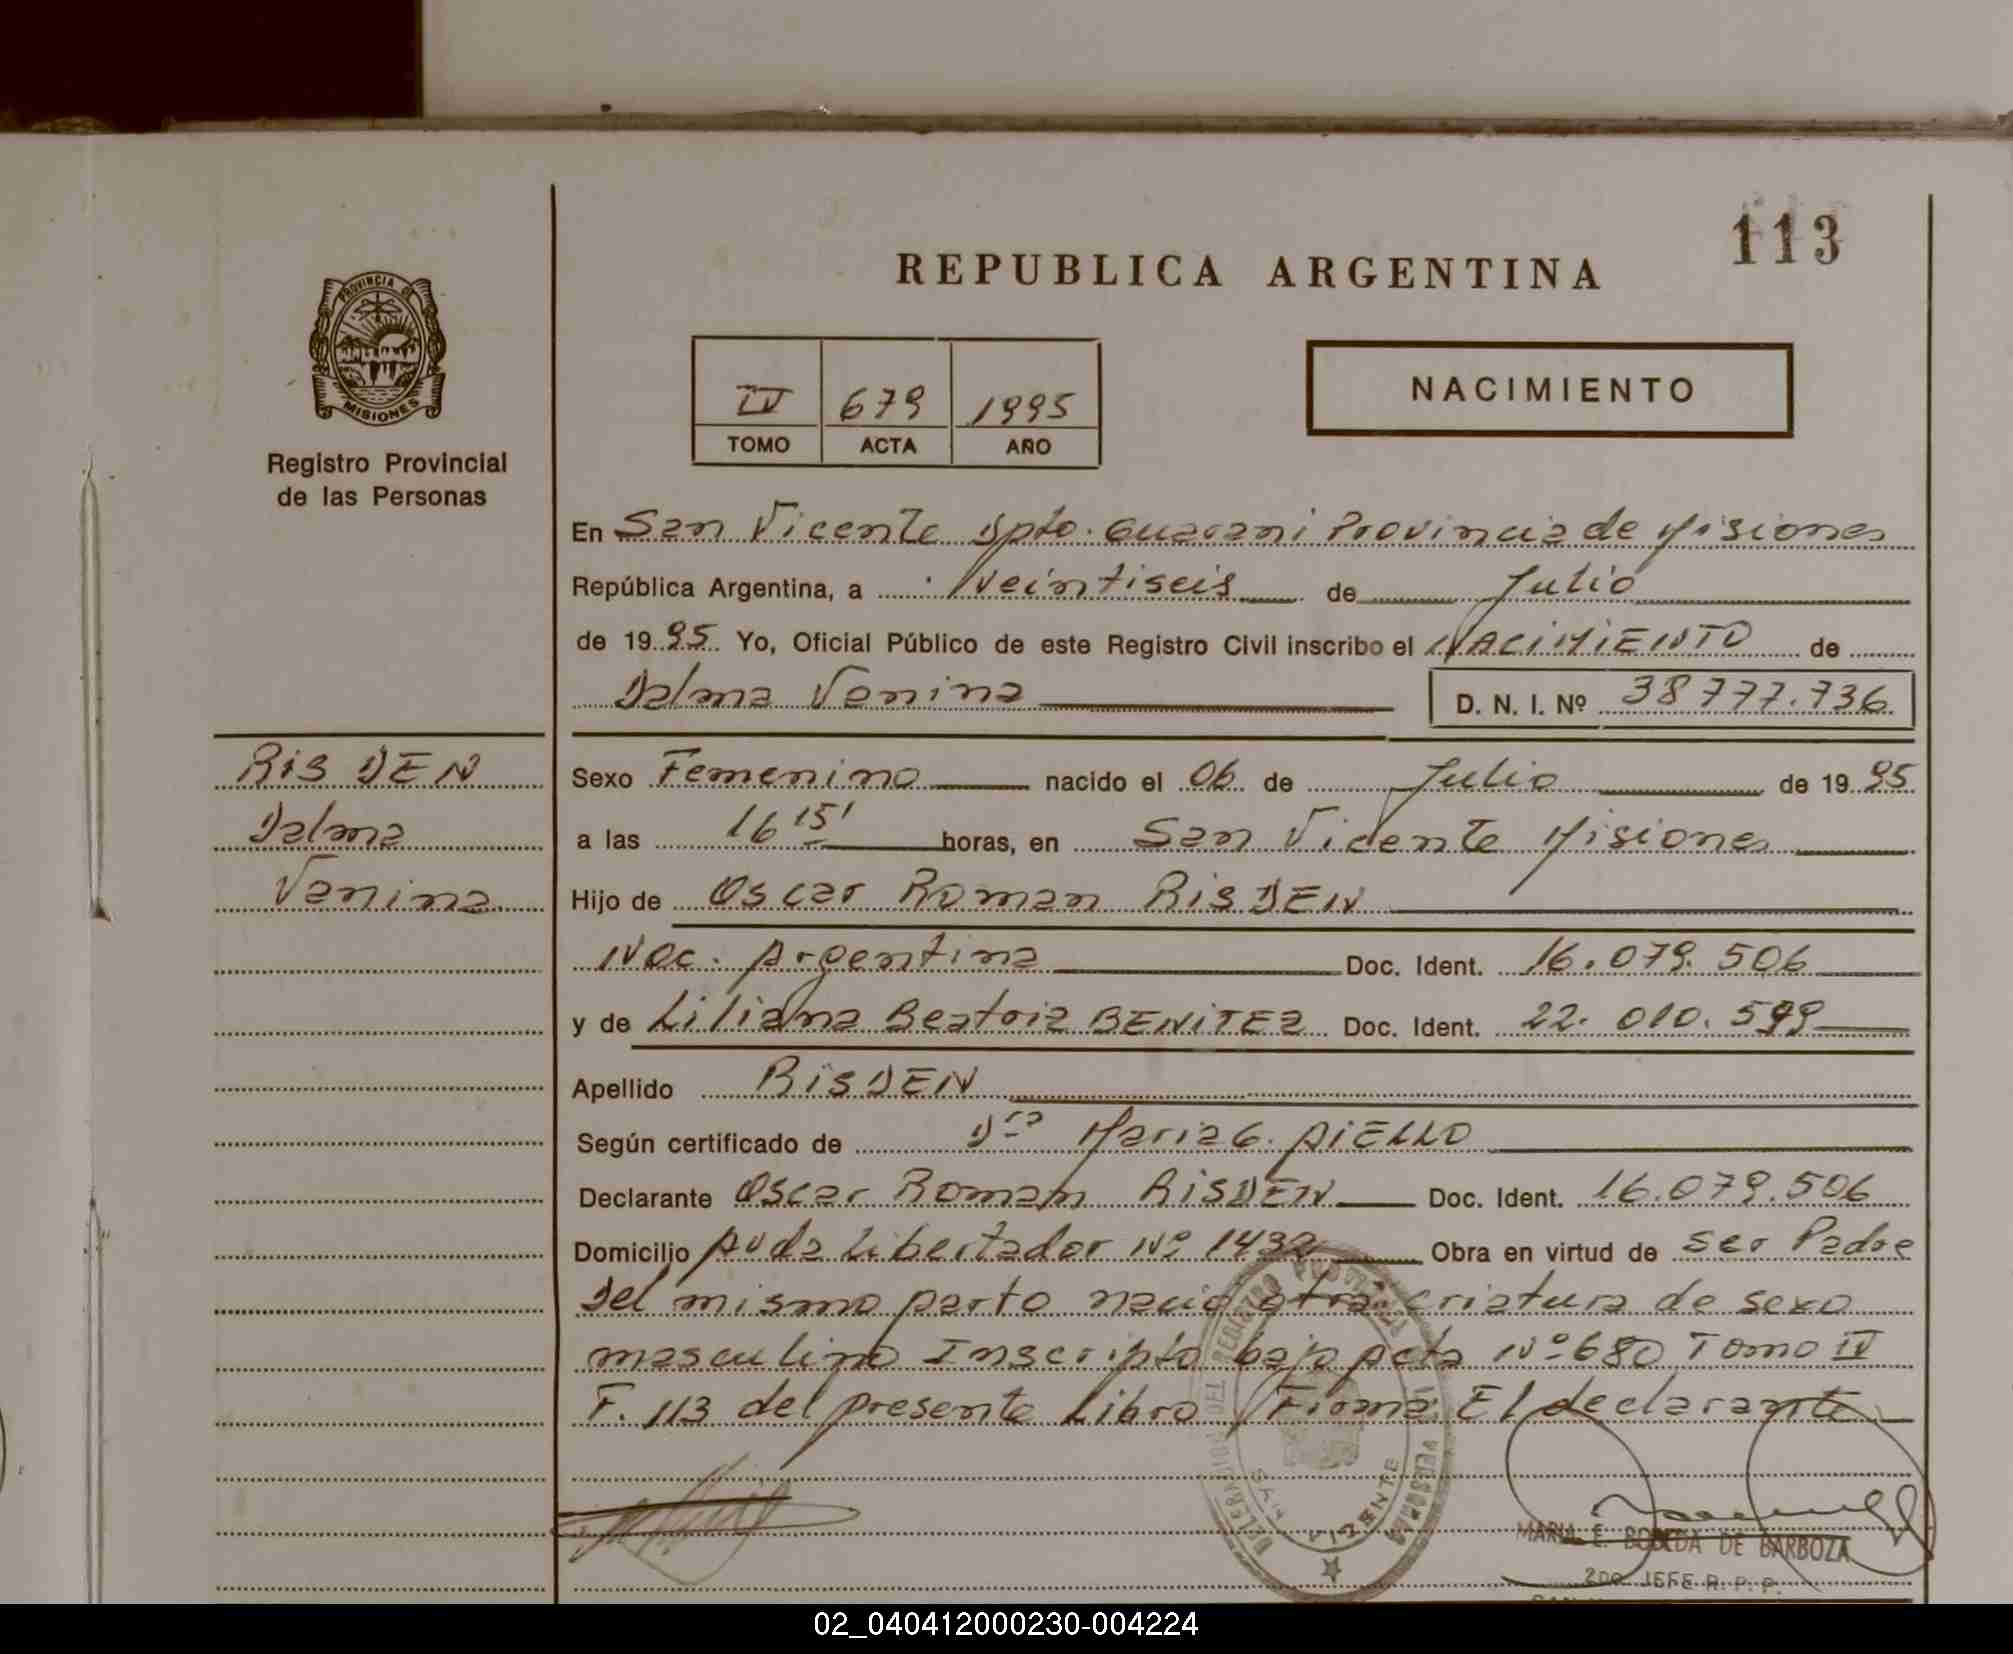 113
REPUBLICA ARGENTINA
PROVINCIA DE
MISIONES
Registro Provincial
de las Personas
IV 679 1995
TOMO ACTA AÑO
NACIMIENTO
En San Vicente Dpto. Guarani Provincia de Misiones
República Argentina, a Veintiseis de Julio
de 1995 Yo, Oficial Público de este Registro Civil inscribo el NACIMIENTO de
Dalma Vanina D. N. I. Nº 38777.736
RISDEN
Dalma
Vanina
Sexo Femenino nacido el 06 de Julio de 1995
a las 16 15' horas, en San Vicente Misiones
Hijo de Oscar Roman RISDEN
Nac. Argentina Doc. Ident. 16.079.506
y de Liliana Beatriz BENITEZ Doc. Ident. 22.010.599
Apellido RISDEN
Según certificado de Dra Maria G. AIELLO
Declarante Oscar Roman RISDEN Doc. Ident. 16.079.506
Domicilio Avda Libertador Nº 1432 Obra en virtud de ser Padre
Del mismo parto nacio otra criatura de sexo
masculino Inscripto bajo Acta Nº 680 Tomo IV
F. 113 del presente Libro Firma El declarante
SAN VICENTE
MARIA E. BOBEDA DE BARBOZA
2DO. JEFE R. P. P.
02_040412000230-004224